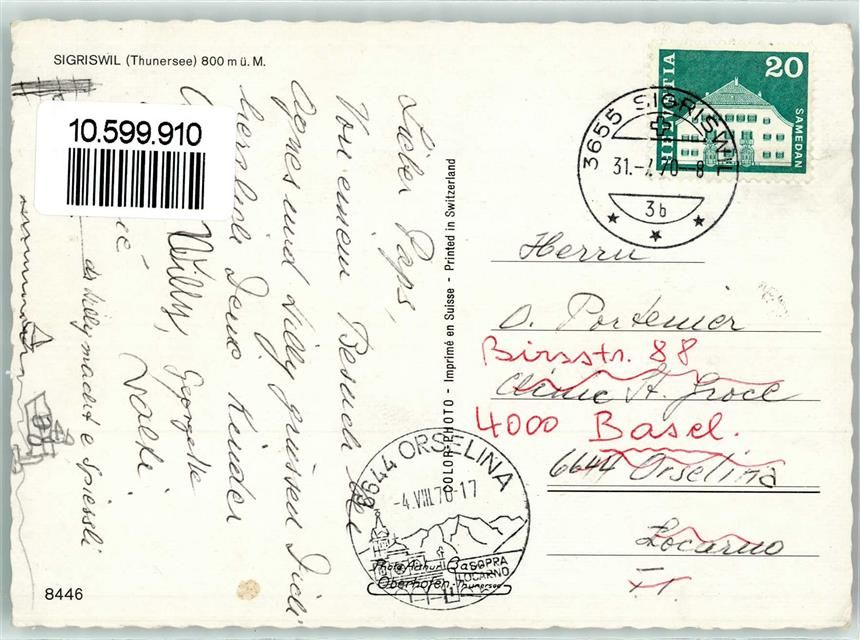 SIGRISWIL (Thunersee) 800 m ü. M.
10.599.910
Lieber Paps,
Von einem Besuch bei
Agnes und Willy grüssen Dich
herzlich Deine Kinder
Willy, Georgette
Walti
de Willy macht e Spiessli
8446
COLOR-PHOTO - Imprimé en Suisse - Printed in Switzerland
HELVETIA
20
SAMEDAN
3655 SIGRISWIL
31.-
70-8
3b
Herrn
O. Portenier
Birsstr. 88
St. Croce
4000 Basel.
6644 Orselina
Locarno
6644 ORSELINA
-4.VIII.70-17
SOPRA
LOCARNO
Oberhofen-Thunersee